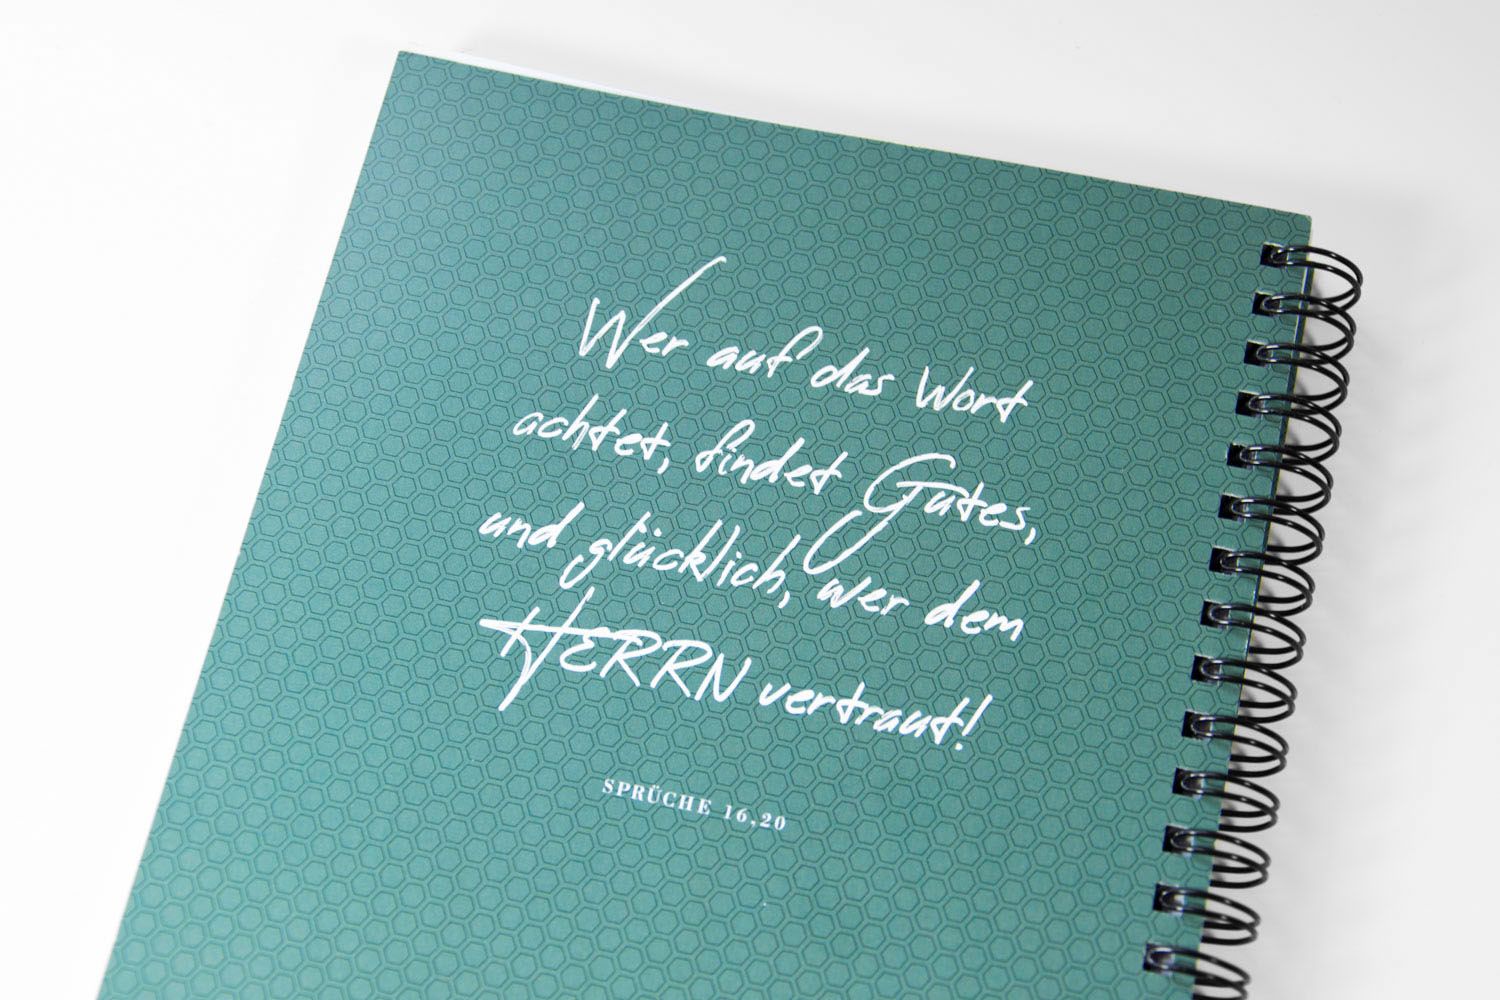 Wer auf das Wort
achtet, findet Gutes,
und glücklich, wer dem
HERRN vertraut!
SPRÜCHE 16,20